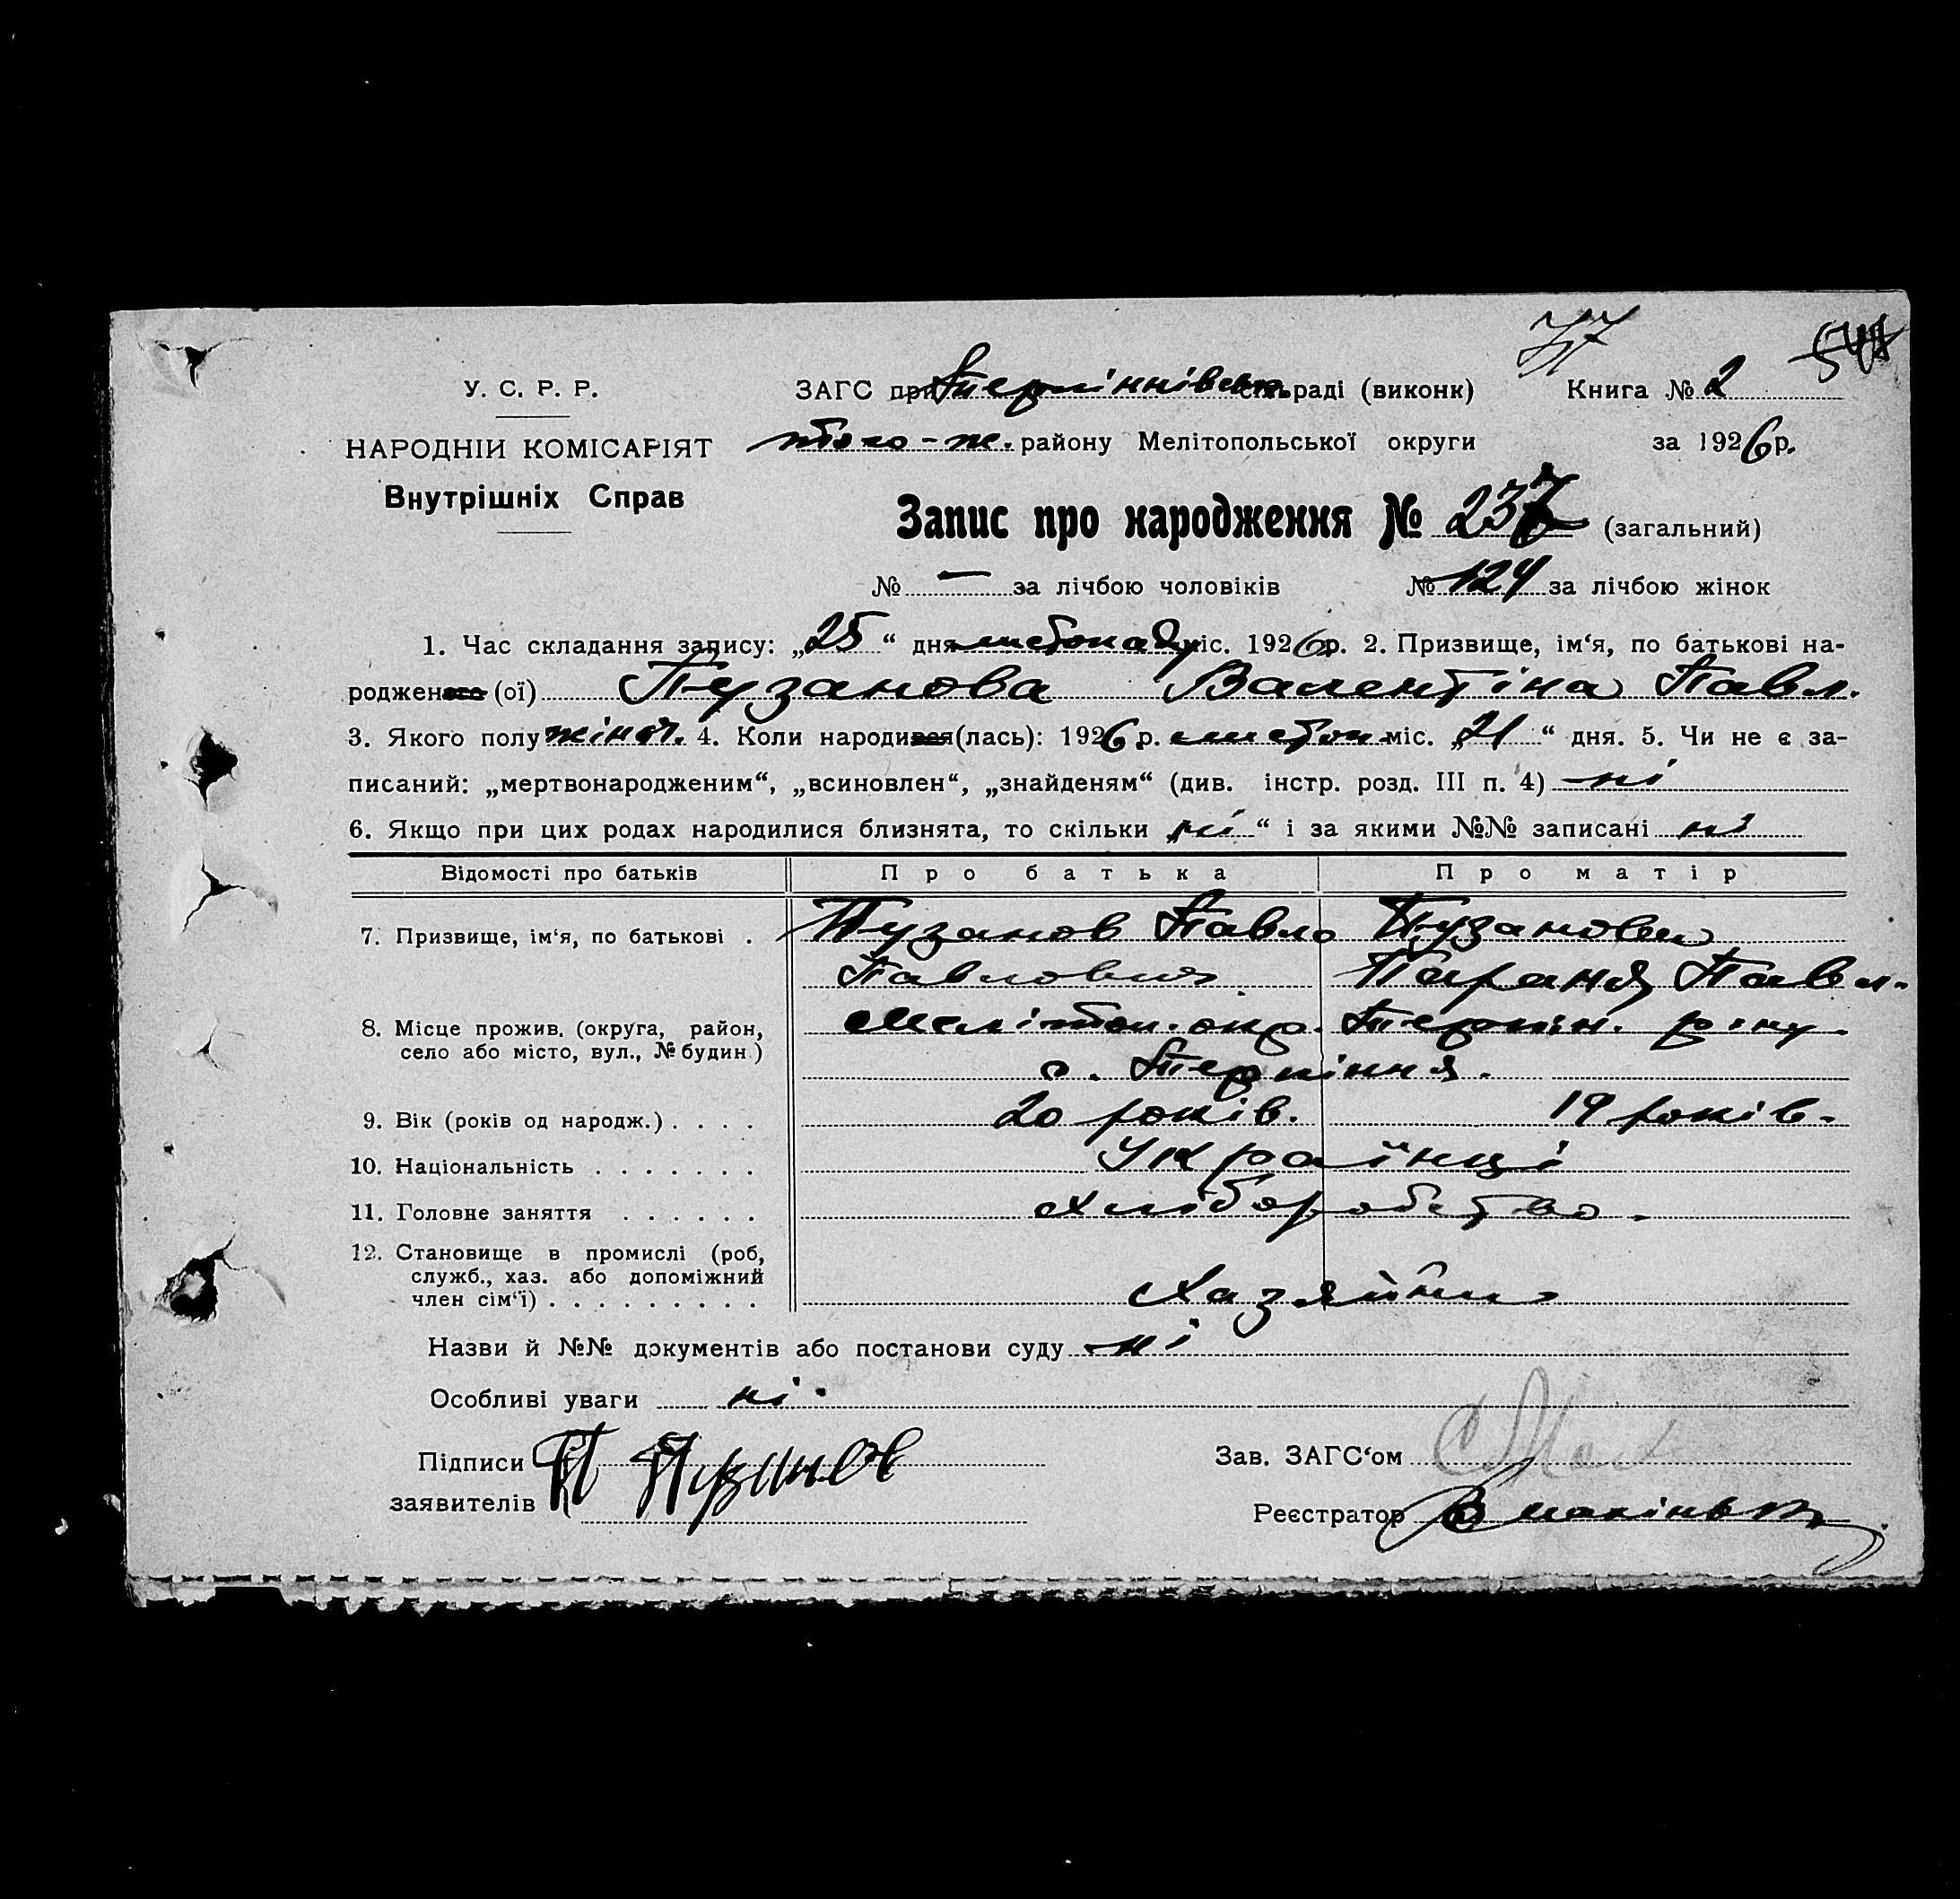 77
У. С. Р. Р.
ЗАГС при Терпіннівськ. раді (виконк) Книга № 2
НАРОДНІИ КОМІСАРІЯТ
району Мелітопольської округи за 1926 р.
Внутрішніх Справ
Запис про народження № 237 (загальний)
№ — за лічбою чоловіків № 124 за лічбою жінок
1. Час складання запису: „25“ дня листопад міс. 1926 р. 2. Призвище, ім‘я, по батькові на-
родженого (ої) Пузанова Валентіна Павл.
3. Якого полу жіноч. 4. Коли народився (лась): 1926 р. листоп міс. „21“ дня. 5. Чи не є за-
писаний: „мертвонародженим“, „всиновлен“, „знайденям“ (див. інстр. розд. III п. 4) ні
6. Якщо при цих родах народилися близнята, то скільки „ні“ і за якими №№ записані ні
Відомості про батьків Про батька Про матір
7. Призвище, ім‘я, по батькові . Пузанов Павло Пузанова
Павлович Параня Павл.
8. Місце прожив. (округа, район, Меліттоп. окр. Терпін. р-ну.
село або місто, вул., № будин.)
с. Терпіння.
9. Вік (років од народж.) . . . . 20 років. 19 років.
10. Національність . . . . . . . Українці
11. Головне заняття . . . . . . Хліборобство.
12. Становище в промислі (роб,
служб., хаз. або допоміжний
член сім‘ї) . . . . . . . . . Хазяїни
Назви й №№ документів або постанови суду ні
Особливі уваги ні.
Підписи П Пузанов
Зав. ЗАГС‘ом
заявителів
Реєстратор